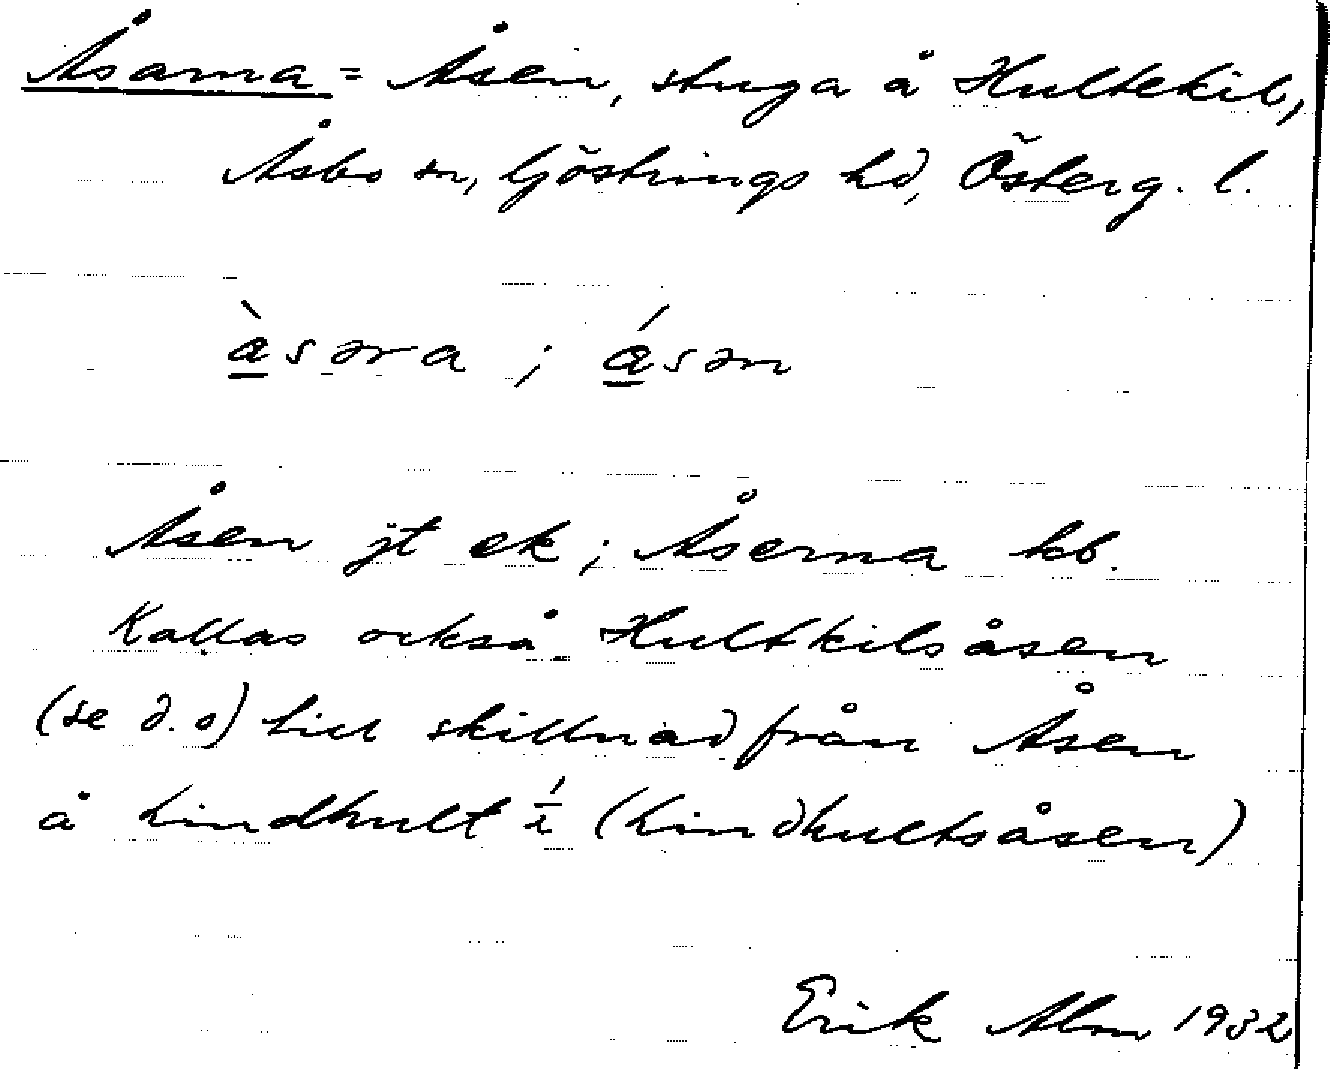 Åsarna = Åsen, stuga å Hultekil,
Åsbo sn, Göstrings hd, Österg. l.
à̲səra ; á̲sən
Åsen jt ek ; Åserna kb.
Kallas också Hultkilsåsen
(se d. o) till skillnad från Åsen
å Lindhult 1/2 (Lindhultsåsen)
Erik Alm 1932